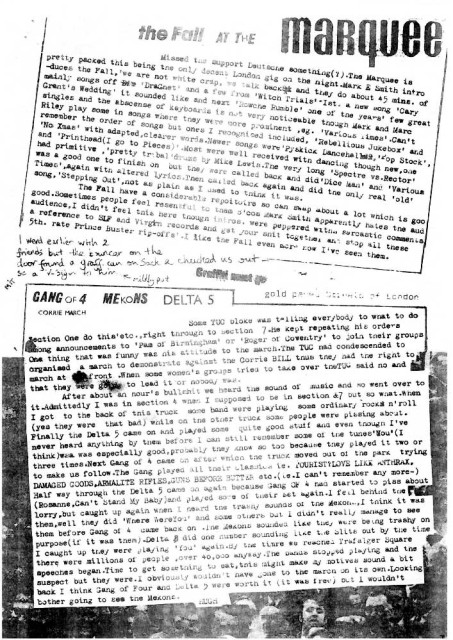 the Fall AT THE marquee
Missed the support Deutsche something(?).The Marquee is
pretty packed this being the only decent London gig on the night.Mark E Smith intro
-duces the Fall,'we are not white crap, we talk back and they do about 45 mins. of
mainly songs off 'Dragnet' and a few from 'Witch Trials'. 1st. a new song 'Cary
Grant's Wedding' it sounded like and next 'Rowche Rumble' one of the years' few great
singles and the abscense of keyboards is not very noticeable though Mark and Marc
Riley play some in songs where they were more prominent ,eg. 'Various Times'.Can't
remember the order of songs but ones I recognised included, 'Rebellious Jukebox' and
'No Xmas' with adapted,clearer words.Newer songs were 'Psykick Dancehall', 'Top Stock',
and 'Printhead(I go to Pieces)'.Most were well received with dancing though new,one
had primitive ,'pretty tribal'drums by Mike Leigh.The very long 'Spectre vs.Rector'
was a good one to finish on but they were called back and did'Dice man' and 'Various
Times',again with altered lyrics.Then called back again and did the only real 'old'
song,'Stepping Out',not as plain as I used to think it was.
The Fall have a considerable repotoire so can swap about a lot which is goo
good.Sometimes people feel resentful to them s'cos Mark Smith apparently hates the aud
audience.I didn't feel this here though intros. were peppered with sarcastic comments
a reference to SLF and Virgin records and get your shit together and stop all these
5th. rate Prince Buster rip-offs'.I like the Fall even more now I've seen them.
I went earlier with 2
friends but the bouncer on the
door found a graff. can on Sack & chucked us out
so a V-sign to him
Graffiti must go
GANG OF 4 MEKONS DELTA 5
CORRIE MARCH
Some TUC bloke was telling everybody to what to do
Section One do this'etc.,right through to section 7.He kept repeating his orders
among announcements to 'Pam of Birmingham' or 'Roger of Coventry' to join their groups
One thing that was funny was his attitude to the march.The TUC had condescended to
organised a march to demonstrate against the Corrie BILL thus they had the right to
march at front .When some women's groups tried to take over theTUC said no and
that they were to lead it or nobody was.
After about an hour's bullshit we heard the sound of music and so went over to
it.Admittedly I was in section 4 when I supposed to be in section 7 but so what.When
I got to the back of this truck some band were playing some ordinary rock& n'roll
(yes they were that bad) while on the other truck some people were pissing about.
Finally the Delta 5 came on and played some quite good stuff and even though I've
never heard anything by them before I can still remember some of the tunes'You'(I
think)was was especially good,probably they know so too because they played it two or
three times.Next Gang of 4 came on after which the truck moved out of the park trying
to make us follow.The Gang played all their classics ie. JOURNISTLOVE LIKE ANTHRAX,
DAMAGED GOODS,ARMALITE RIFLES,GUNS BEFORE BUTTER etc.(ie.I can't remember any more-)
Half way through the Delta 5 came on again because Gang OF 4 had started to piss about
(Rosanne,Can't Stand My Baby)and played more of their set again.I fell behind the
lorry,but caught up again when I heard the trashy sounds of the Mekons,I think it was
then,well they did 'Where Werefou' and some others but I didn't really manage to see
them before Gang of 4 came back on .The Mekons sounded like they were being trashy on
purpose(if it was them).Delta 5 did one number sounding like the Slits but by the time
I caught up they were playing 'You' again.By the time we reached Trafalger Square
there were millions of people ,over 40,000 anyway.The bands stopped playing and the
speeches began.Time to get something to eat,this might make my motives sound a bit
suspect but they were.I obviously wouldn't have gone to the march on its own.Looking
back I think Gang of Four and Delta 5 were worth it (it was free) but I wouldn't
bother going to see the Mekons. HUGH